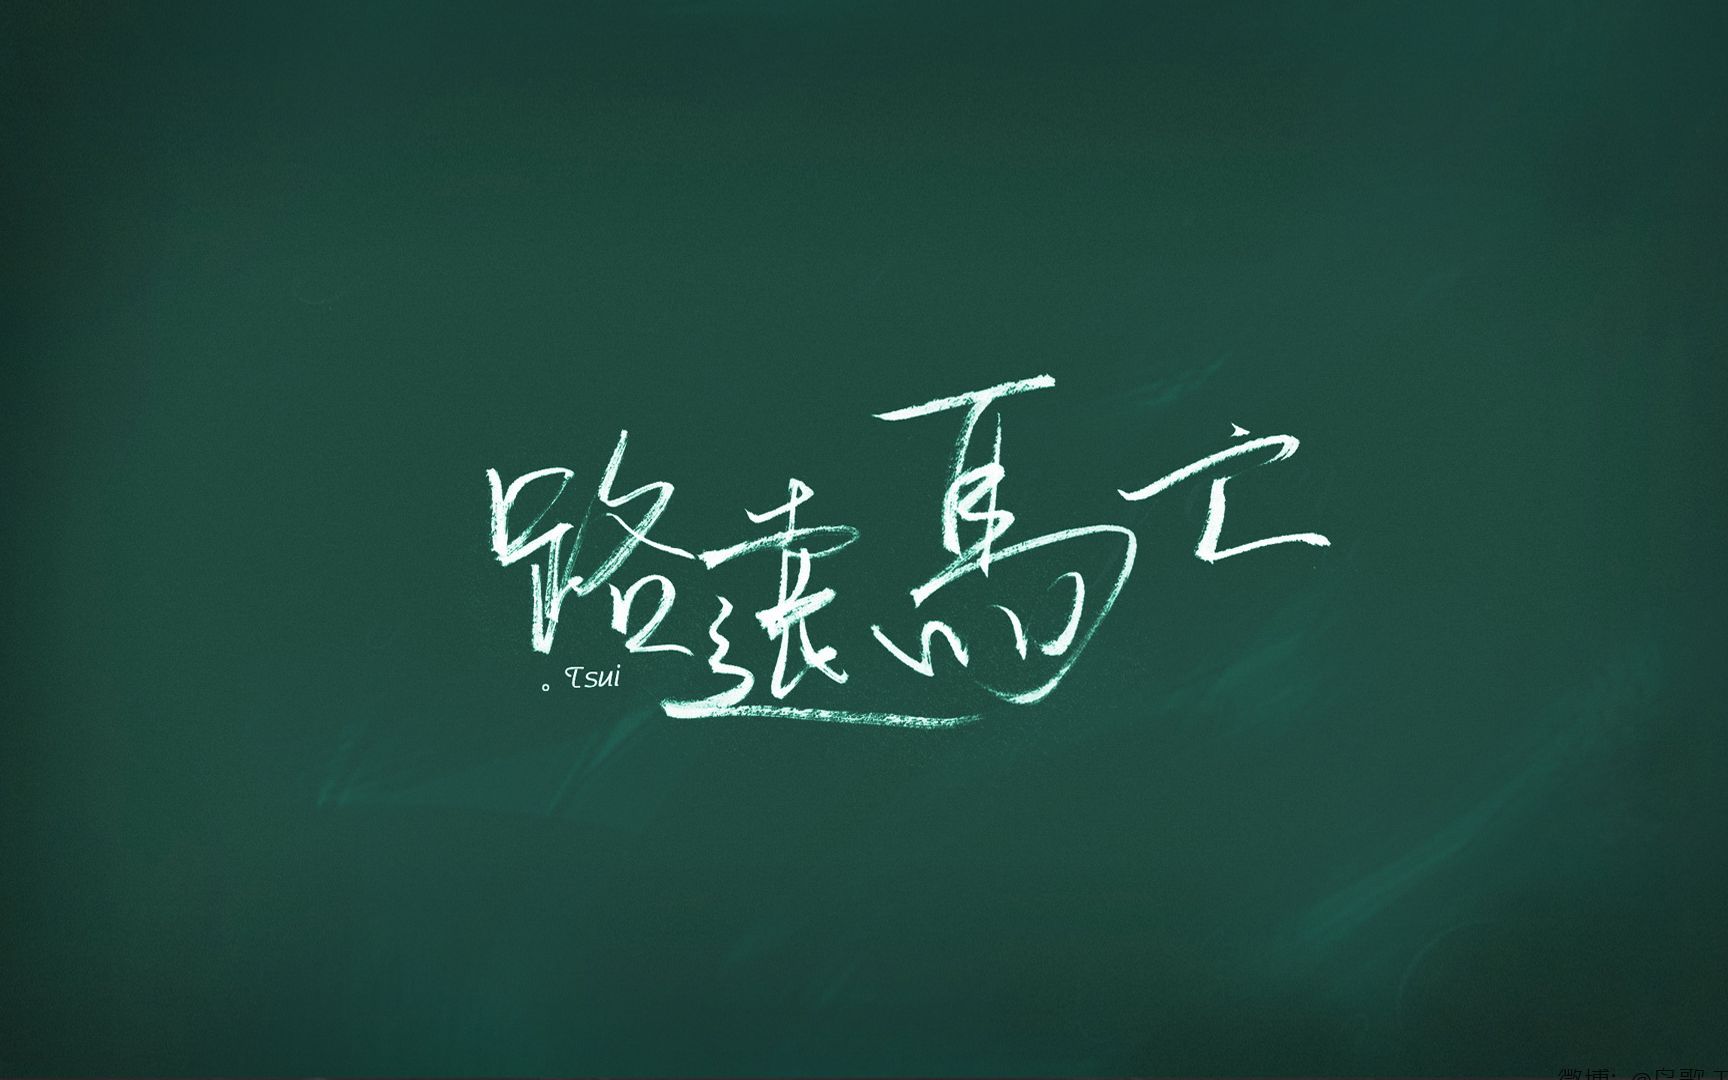 路遠馬亡
。Tsui
微博: @鳥歌